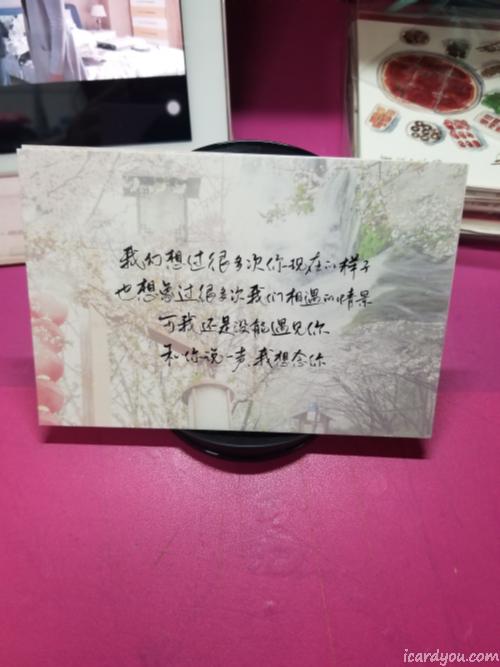 我幻想过很多次你现在的样子
也想象过很多次我们相遇的情景
可我还是没能遇见你
和你说一声,我想念你
icardyou.com